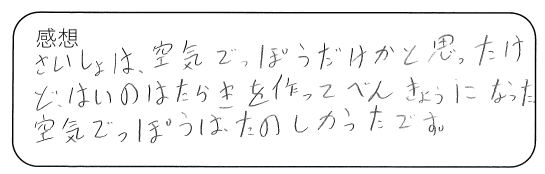 感想
さいしょは、空気でっぽうだけかと思ったけ
ど、はいのはたらきを作ってべんきょうになった。
空気でっぽうは、たのしかったです。